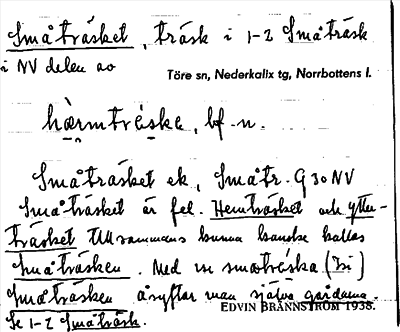 Småträsket, träsk i 1-2 Småträsk
i NV delen av
Töre sn, Nederkalix tg, Norrbottens l.
hærmtreske, bf. n.
Småträsket ek, Småtr. G 30 NV
Småträsket är fel. Hemträsket och Ytter-
träsket tillsammans kunna kanske kallas
Småträsken. Med en småtreska (Di)
Småträsken åsyftar man själva gårdarna.
Se 1-2 Småträsk.
EDVIN BRÄNNSTRÖM 1938.